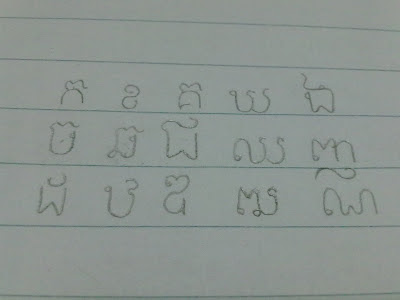 ក ខ គ ឃ ង
ច ឆ ជ ឈ ញ
ដ ឋ ឌ ឍ ណ